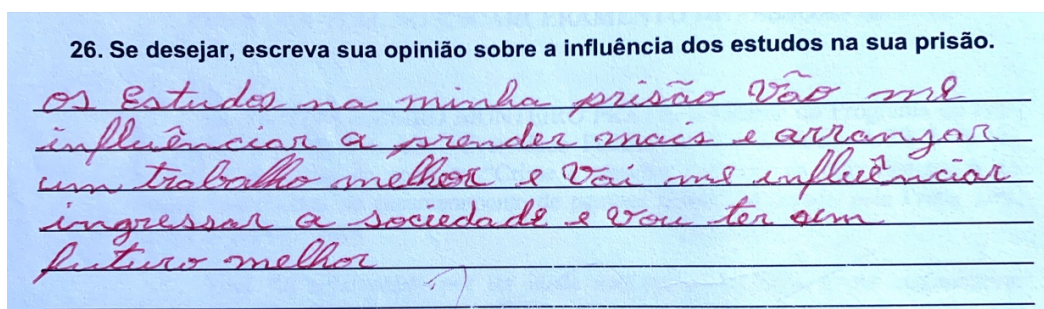 26. Se desejar, escreva sua opinião sobre a influência dos estudos na sua prisão.
os Estudos na minha prisão vão me
influênciar a prender mais e arranjar
um trabalho melhor e vai me influênciar
ingressar a sociedade e vou ter um
futuro melhor